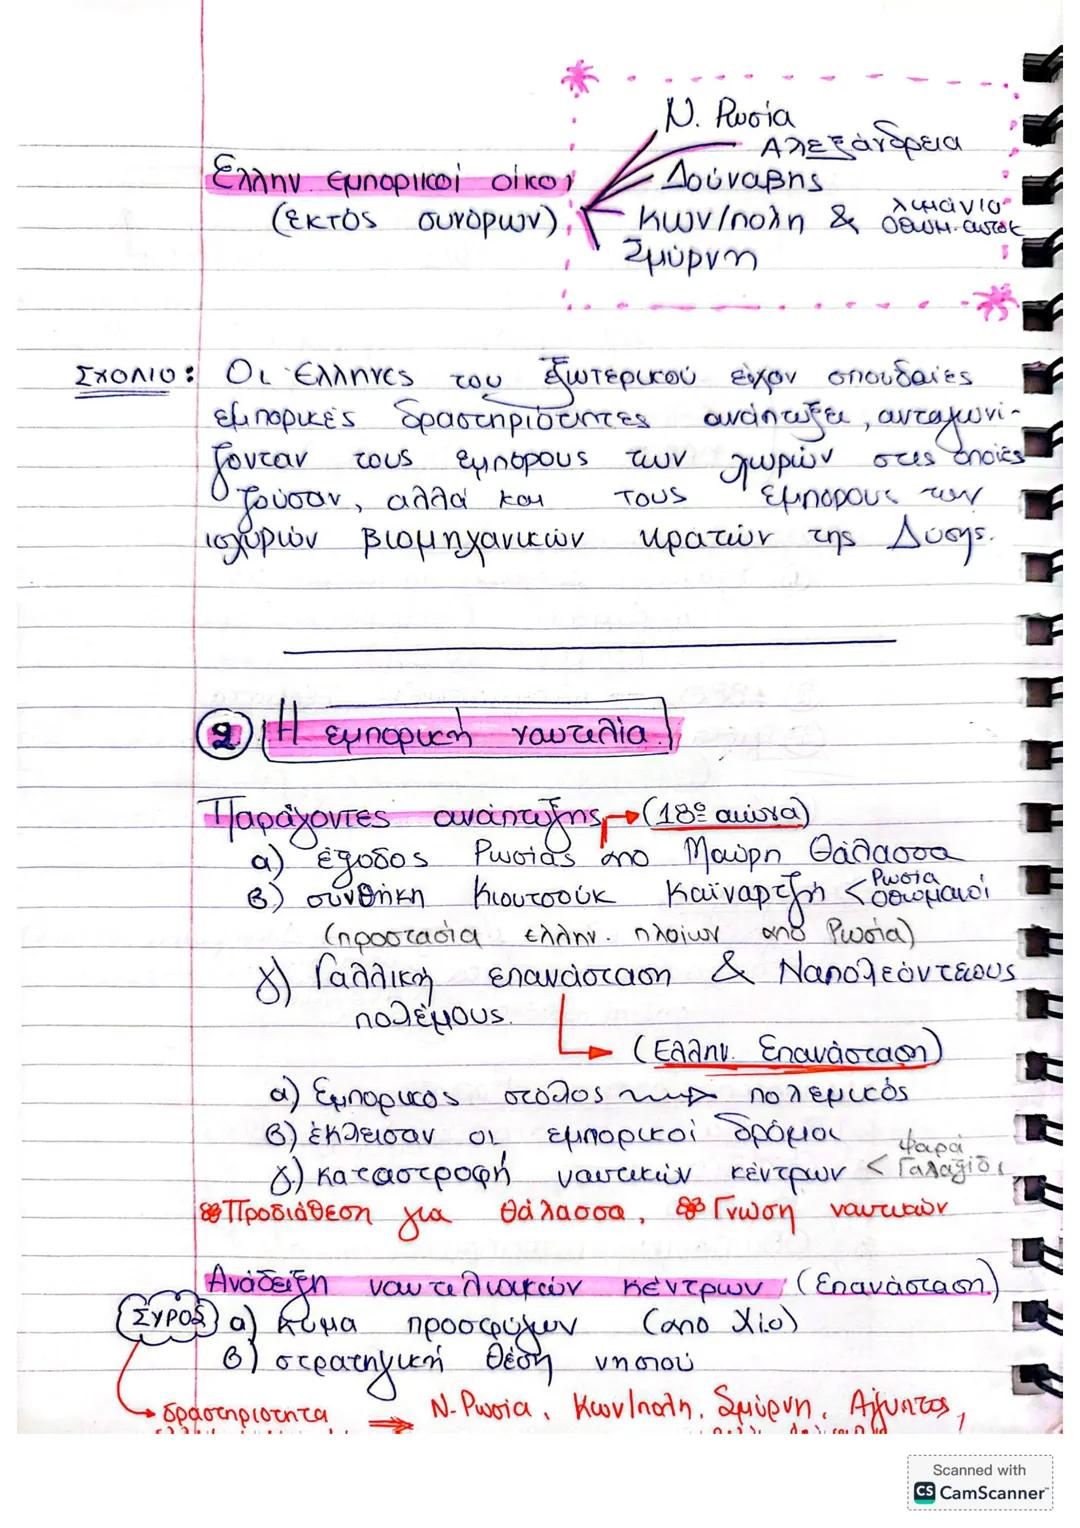 Ν. Ρωσία
Αλεξάνδρεια
Ελλην. εμπορικοί οίκοι
Δούναβης
(εκτός συνόρων)
Κων/πολη & λιμάνια οθωμ. αυτοκ
Σμύρνη
Σχόλιο: Οι Έλληνες του εξωτερικού είχαν σπουδαίες
εμπορικές δραστηριότητες αναπτύξει, ανταγωνί-
ζονταν τους εμπόρους των χωρών στις οποίες
ζούσαν, αλλά και τους εμπόρους των
ισχυρών βιομηχανικών κρατών της Δύσης.
2 Η εμπορική ναυτιλία
Παράγοντες ανάπτυξης (18ο αιώνα)
α) έξοδος Ρωσίας από Μαύρη Θάλασσα
β) συνθήκη Κιουτσούκ Καϊναρτζή < Ρωσία Οθωμανοί
(προστασία ελλην. πλοίων από Ρωσία)
γ) Γαλλική επανάσταση & Ναπολεόντειους
πολέμους.
(Ελλην. Επανάσταση)
α) Εμπορικός στόλος → πολεμικός
β) έκλεισαν οι εμπορικοί δρόμοι
γ.) καταστροφή ναυτικών κέντρων < Ψαρά Γαλαξίδι
Προδιάθεση για θάλασσα, Γνώση ναυτικών
Ανάδειξη ναυτιλιακών κέντρων (Επανάσταση)
ΣΥΡΟΣ α) κύμα προσφύγων (από Χίο)
β) στρατηγική θέση νησιού
δραστηριότητα ⇒ Ν. Ρωσία, Κων/πολη, Σμύρνη, Αίγυπτος,
Scanned with
CS CamScanner